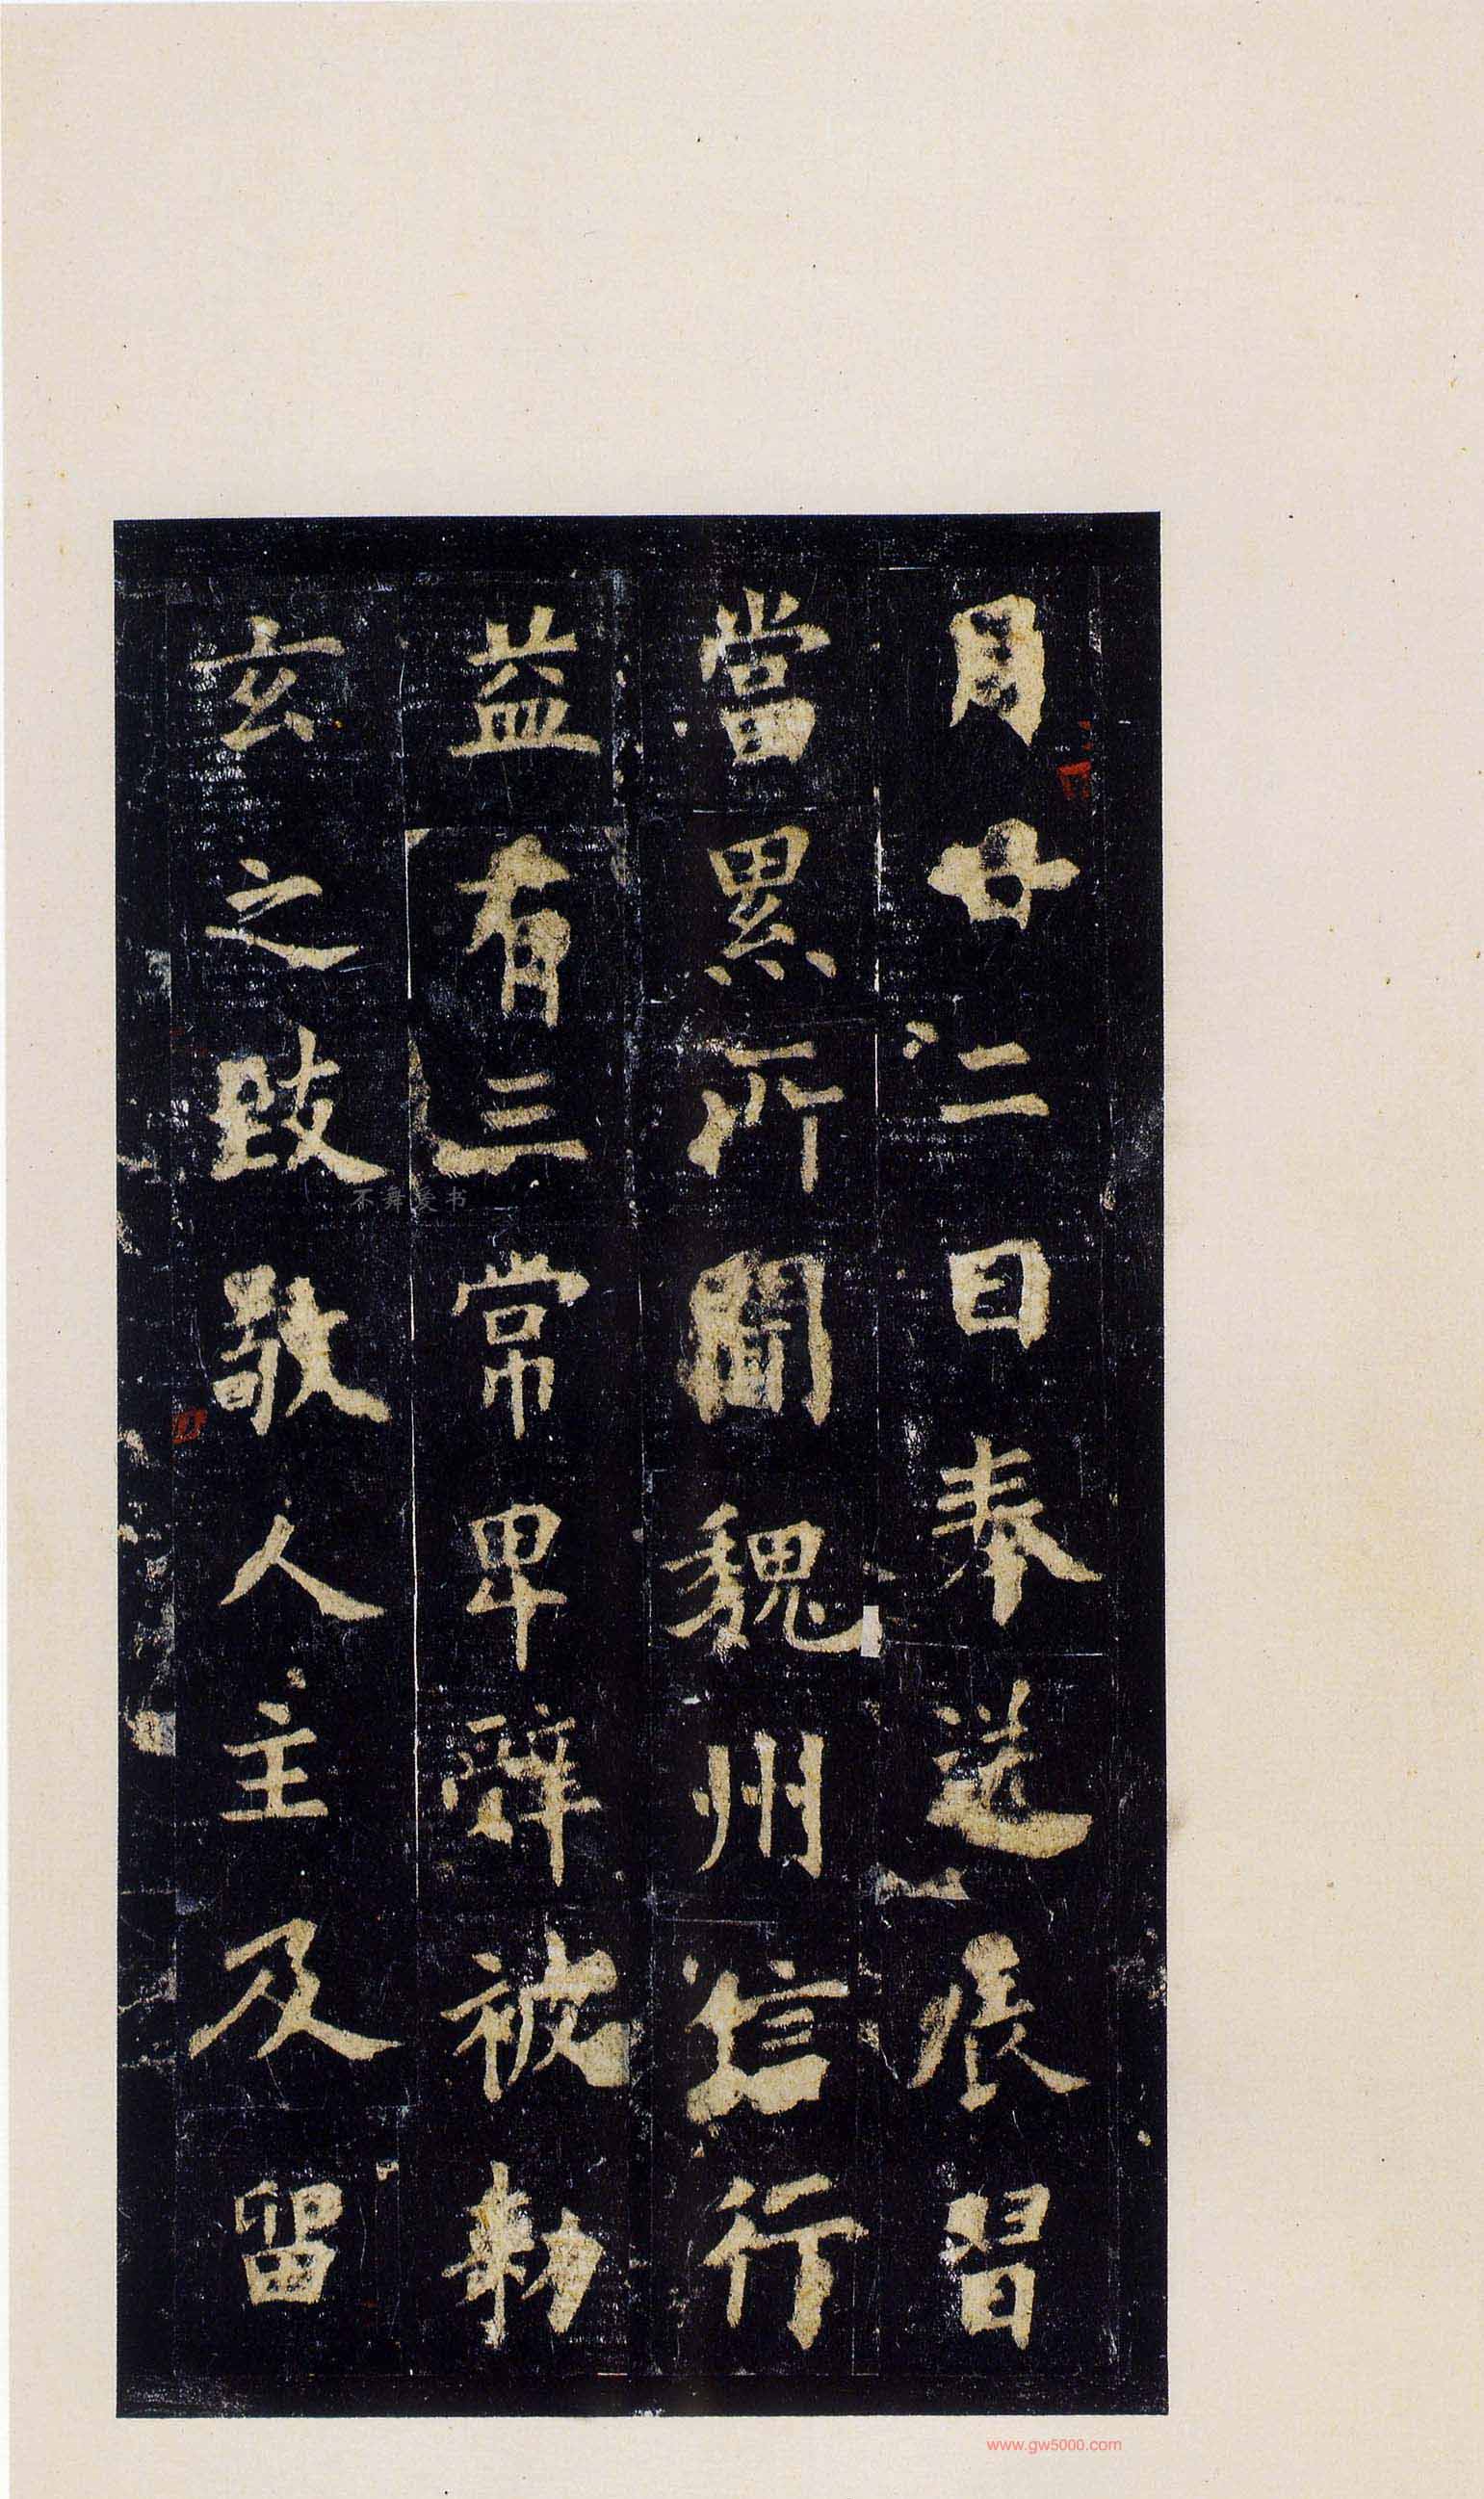 月廿二日奉送展習
當累所圖魏州信行
益有三常卑辭被勑
玄之致敬人主及留
不舞爱书
www.gw5000.com